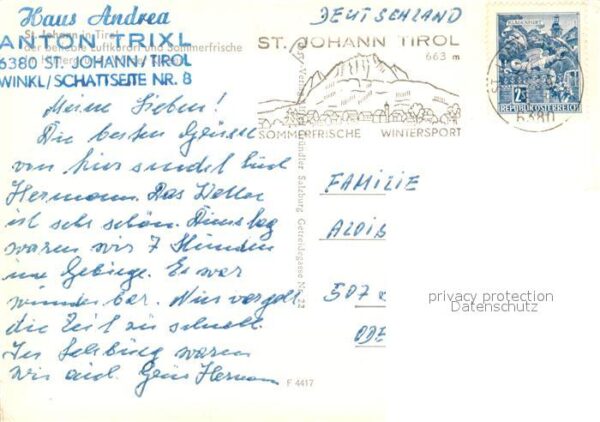 Haus Andrea
ANTON TRIXL
6380 ST. JOHANN/TIROL
WINKL/SCHATTSEITE NR. 8
St. Johann in Tirol
der beliebte Luftkurort und Sommerfrische
DEUTSCHLAND
ST. JOHANN TIROL
663 m
SOMMERFRISCHE WINTERSPORT
KLAGENFURT
2S
REPUBLIK ÖSTERREICH
6380
Meine Lieben!
Die besten Grüsse
von hier sendet Euch
Hermann. Das Wetter
ist sehr schön. Dienstag
waren wir 7 Stunden
im Gebirge. Es war
wunderbar. Nur vergeht
die Zeit zu schnell.
In Salzburg waren
wir auch. Gruss Hermann
Gründler Salzburg Getreidegasse Nr. 22
FAMILIE
ALOIS
507
ODE
F 4417
privacy protection
Datenschutz